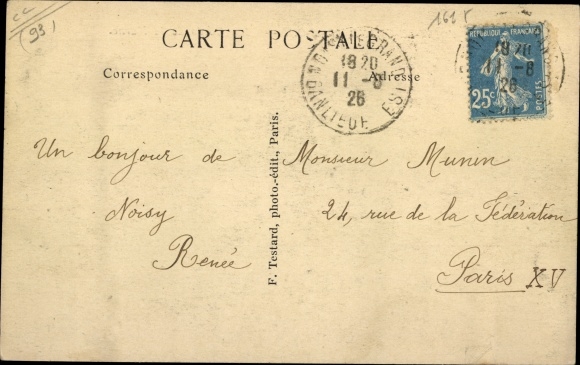 (93)
CARTE POSTALE
Correspondance
Adresse
18 20
11 - 8
26
BANLIEUE EST
RÉPUBLIQUE FRANÇAISE
25c
POSTES
Un bonjour de
Noisy
Renée
F. Testard, photo.-édit., Paris.
Monsieur Munin
24, rue de la Fédération
Paris XV